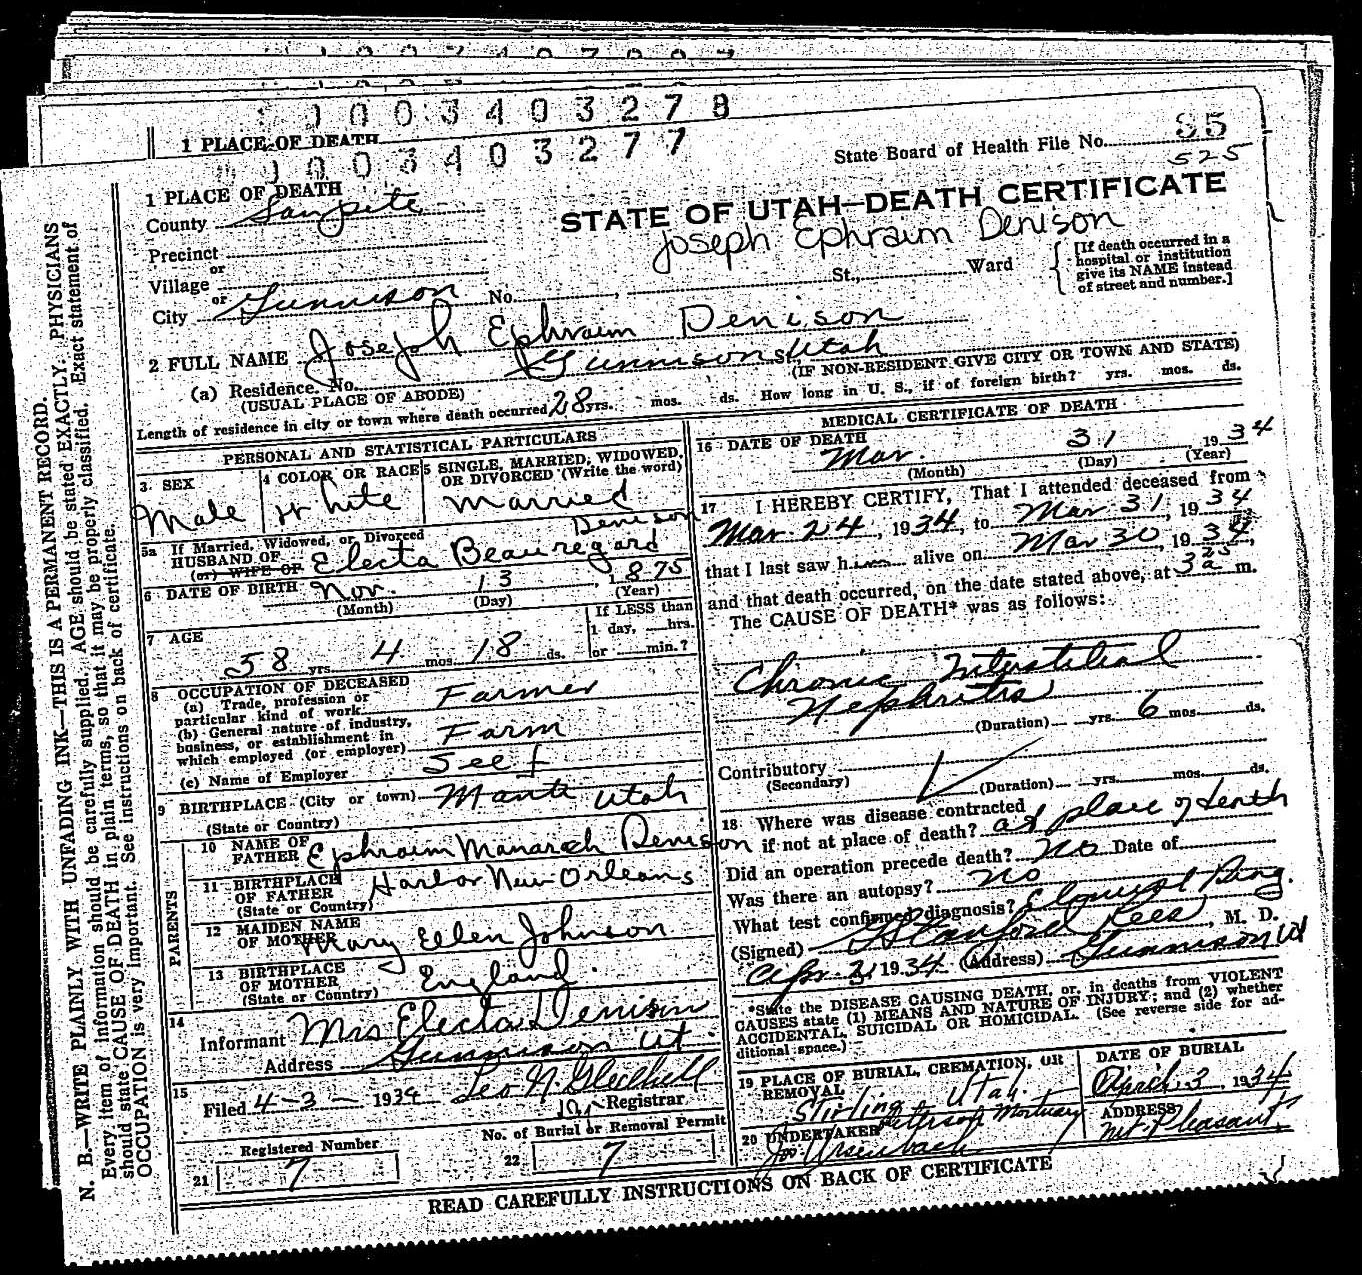 1003403278
1 PLACE OF DEATH
1003403277
State Board of Health File No. 85
525
1 PLACE OF DEATH
STATE OF UTAH—DEATH CERTIFICATE
Joseph Ephraim Denison
County Sanpete
Precinct
or
Village
or
City Gunnison No. , St., Ward
[If death occurred in a hospital or institution give its NAME instead of street and number.]
2 FULL NAME Joseph Ephraim Denison
(a) Residence. No. Gunnison St. Utah
(USUAL PLACE OF ABODE) (IF NON-RESIDENT GIVE CITY OR TOWN AND STATE)
Length of residence in city or town where death occurred 28 yrs. mos. ds. How long in U. S., if of foreign birth? yrs. mos. ds.
PERSONAL AND STATISTICAL PARTICULARS
3 SEX Male
4 COLOR OR RACE White
5 SINGLE, MARRIED, WIDOWED, OR DIVORCED (Write the word) Married
5a If Married, Widowed, or Divorced
HUSBAND OF Electa Beauregard Denison
(or) WIFE OF
6 DATE OF BIRTH Nov. 13, 1875
(Month) (Day) (Year)
7 AGE 58 yrs. 4 mos. 18 ds.
If LESS than 1 day, hrs. or min.?
8 OCCUPATION OF DECEASED
(a) Trade, profession or particular kind of work Farmer
(b) General nature of industry, business, or establishment in which employed (or employer) Farm
(c) Name of Employer Self
9 BIRTHPLACE (City or town) Manti Utah
(State or Country)
PARENTS
10 NAME OF FATHER Ephraim Manarah Denison
11 BIRTHPLACE OF FATHER Harbor New Orleans
(State or Country)
12 MAIDEN NAME OF MOTHER Mary Ellen Johnson
13 BIRTHPLACE OF MOTHER England.
(State or Country)
14 Informant Mrs Electa Denison
Address Gunnison Ut.
15 Filed 4-3- 1934 Leo N. Gledhill
Registrar
Registered Number
21 7
No. of Burial or Removal Permit
22 7
MEDICAL CERTIFICATE OF DEATH
16 DATE OF DEATH Mar. 31, 1934
(Month) (Day) (Year)
17 I HEREBY CERTIFY, That I attended deceased from
Mar. 24, 1934, to Mar 31, 1934
that I last saw him alive on Mar 30, 1934,
and that death occurred, on the date stated above, at 3 25 a m.
The CAUSE OF DEATH* was as follows:
Chronic Interstitial
Nephritis
(Duration) yrs. 6 mos. ds.
Contributory
(Secondary) (Duration) yrs. mos. ds.
18 Where was disease contracted
if not at place of death? at place of death
Did an operation precede death? No Date of
Was there an autopsy? no
What test confirmed diagnosis?
(Signed) G Stanford Rees, M. D.
Apr. 2, 1934 (Address) Gunnison Ut
*State the DISEASE CAUSING DEATH, or, in deaths from VIOLENT
CAUSES state (1) MEANS AND NATURE OF INJURY; and (2) whether
ACCIDENTAL, SUICIDAL OR HOMICIDAL. (See reverse side for additional space.)
19 PLACE OF BURIAL, CREMATION, OR REMOVAL Stirling Utah.
DATE OF BURIAL April 3, 1934
20 UNDERTAKER Peterson Mortuary
ADDRESS Mt. Pleasant
READ CAREFULLY INSTRUCTIONS ON BACK OF CERTIFICATE
N. B.—WRITE PLAINLY WITH UNFADING INK—THIS IS A PERMANENT RECORD.
Every item of information should be carefully supplied. AGE should be stated EXACTLY. PHYSICIANS
should state CAUSE OF DEATH in plain terms, so that it may be properly classified. Exact statement of
OCCUPATION is very important. See instructions on back of certificate.